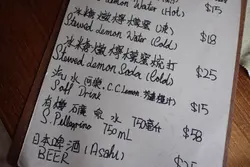 Lemon Water (Hot) $15
冰燉檸檬蜜(凍)
Stewed Lemon Water (Cold) $18
冰燉檸檬梳打
Stewed Lemon Soda (Cold) $25
汽水 C.C. Lemon
Soft Drink $15
有氣 水 750毫升
S. Pellegrino 750mL $58
日本啤酒 (Asahi)
BEER $25